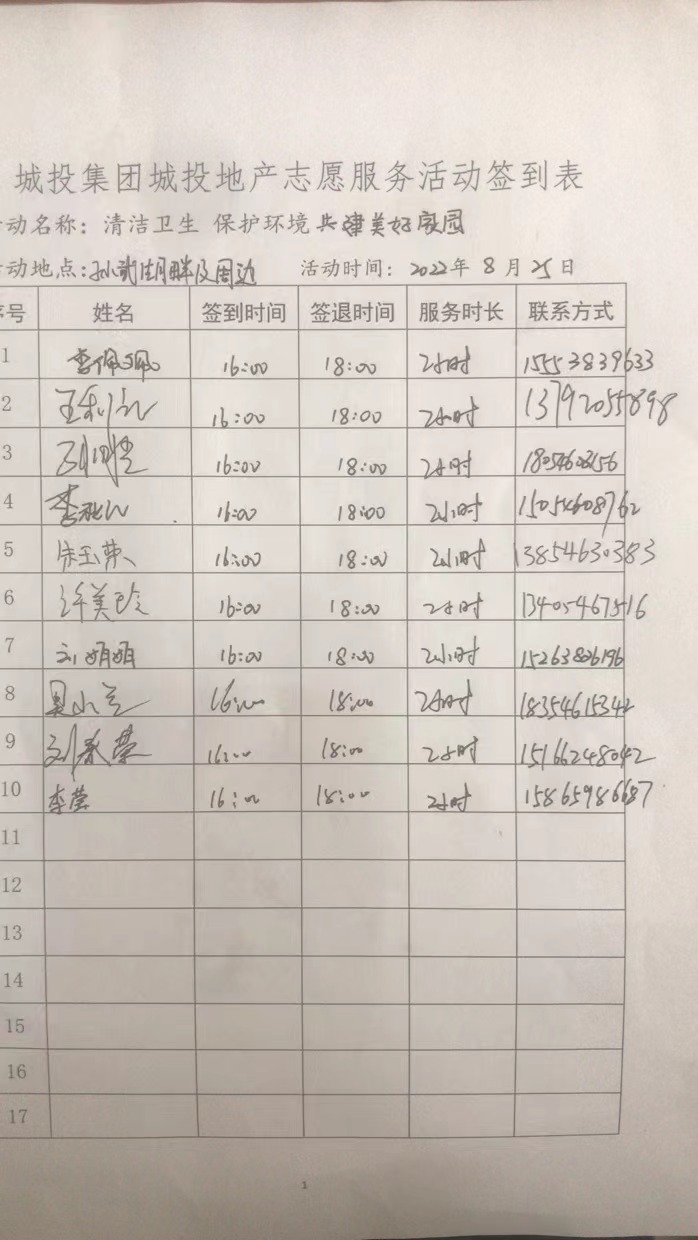 城投集团城投地产志愿服务活动签到表
动名称：清洁卫生 保护环境 共建美好家园
动地点：孙武湖畔及周边 活动时间：2022年8月25日
序号 姓名 签到时间 签退时间 服务时长 联系方式
1 李佩佩 16:00 18:00 2小时 15553839633
2 16:00 18:00 2小时 13792055898
3 16:00 18:00 2小时
4 16:00 18:00 2小时 15054608762
5 朱玉荣 16:00 18:00 2小时 13854630383
6 许美玲 16:00 18:00 2小时 13405467516
7 刘娟娟 16:00 18:00 2小时 15263806196
8 16:00 18:00 2小时 18354615342
9 16:00 18:00 2小时 15166248042
10 李莹 16:00 18:00 2小时 15865986687
11
12
13
14
15
16
17
1